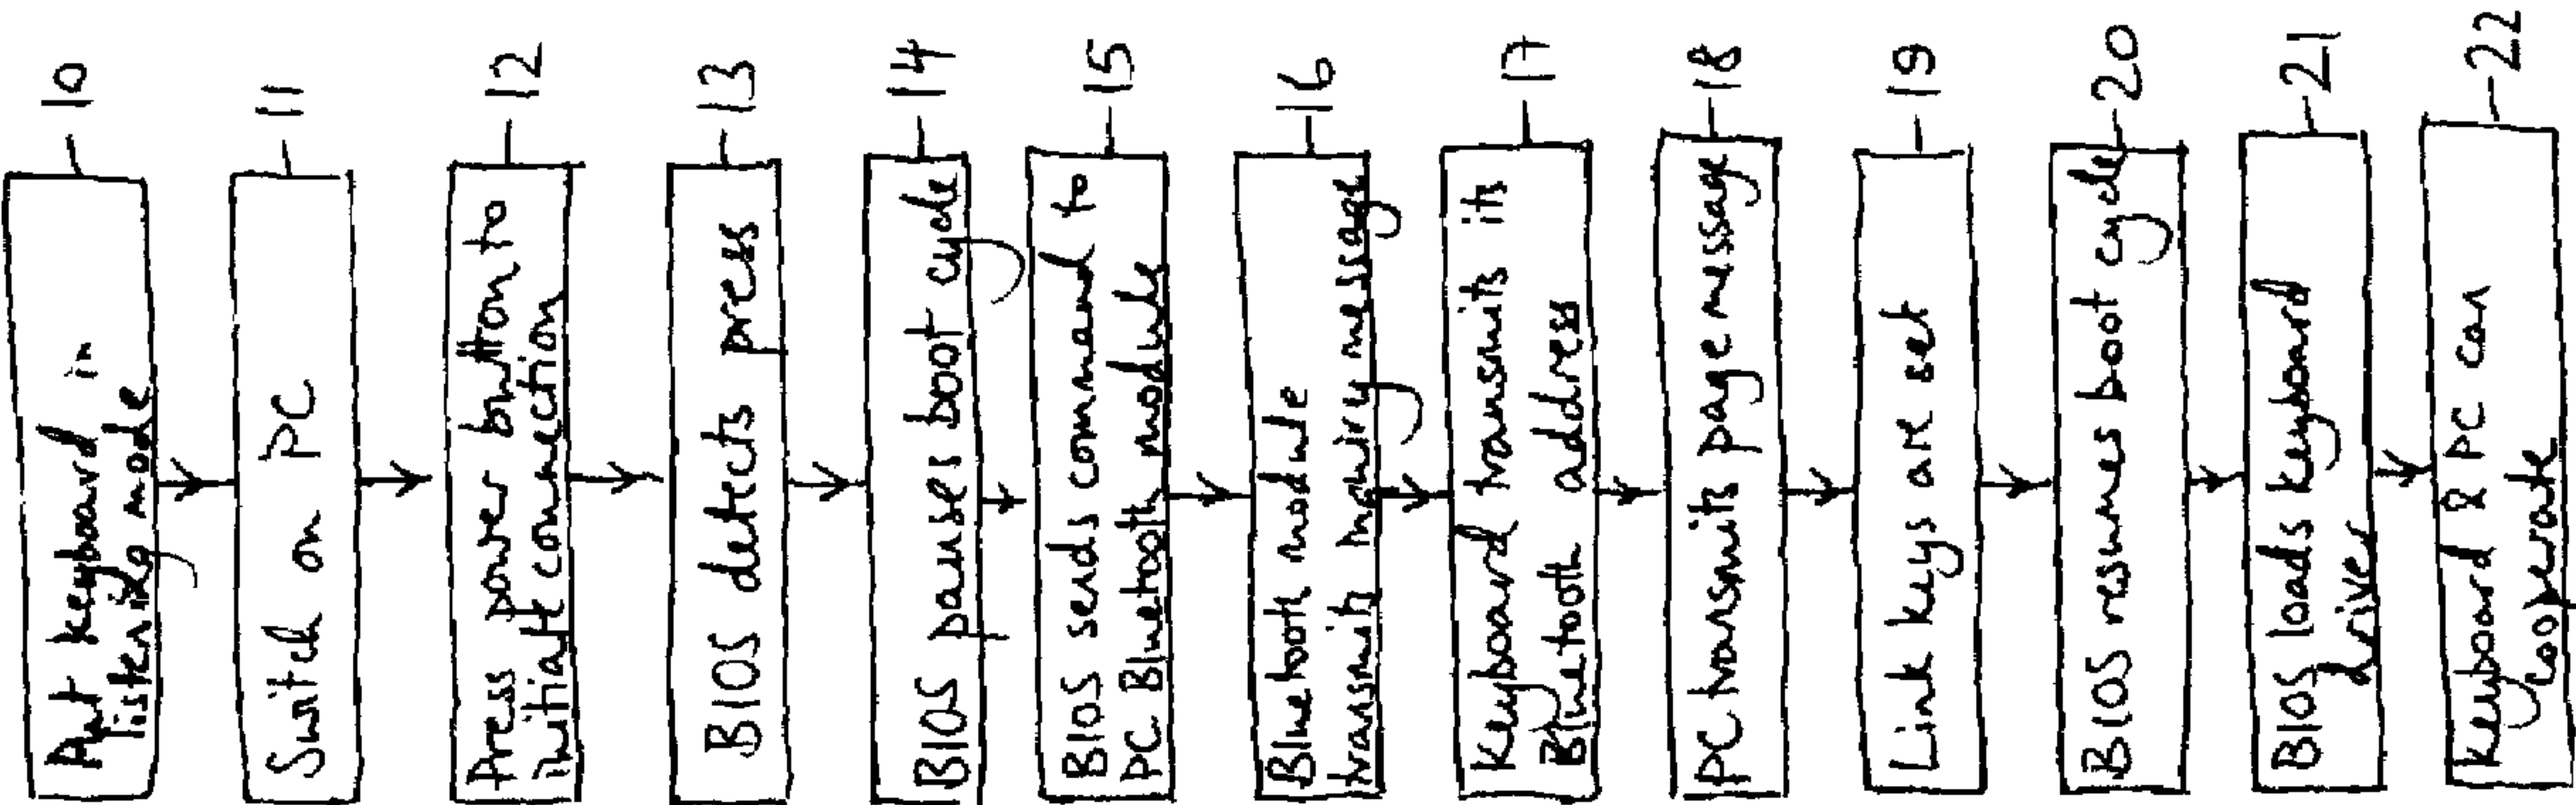 Put keyboard in
listening mode
10
Switch on PC
11
Press power button to
initiate connection
12
BIOS detects press
13
BIOS pauses boot cycle
14
BIOS sends command to
PC Bluetooth module
15
Bluetooth module
transmits inquiry message
16
Keyboard transmits its
Bluetooth address
17
PC transmits page message
18
Link keys are set
19
BIOS resumes boot cycle
20
BIOS loads keyboard
driver
21
Keyboard & PC can
cooperate
22